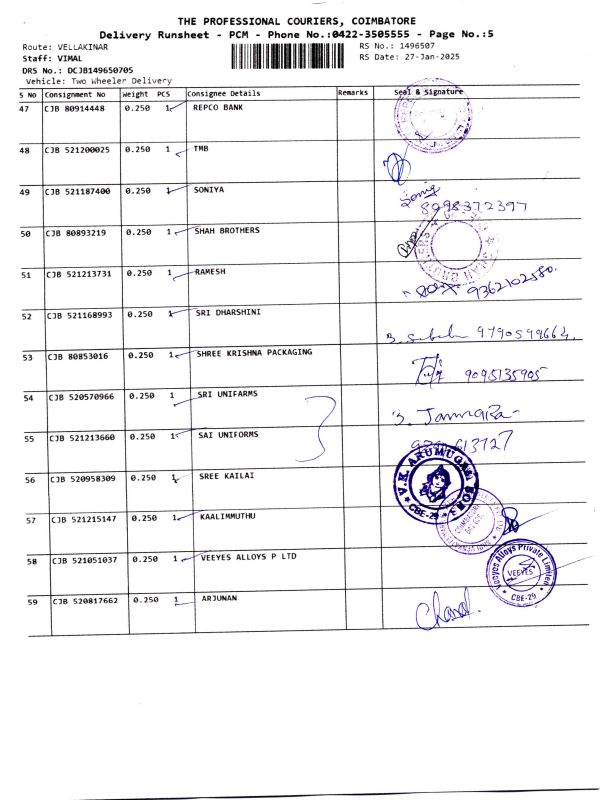 THE PROFESSIONAL COURIERS, COIMBATORE
Delivery Runsheet - PCM - Phone No.:0422-3505555 - Page No.:5
Route: VELLAKINAR RS No.: 1496507
Staff: VIMAL RS Date: 27-Jan-2025
DRS No.: DCJB149650705
Vehicle: Two Wheeler Delivery
S No Consignment No Weight PCS Consignee Details Remarks Seal & Signature
47 CJB 80914448 0.250 1 REPCO BANK
48 CJB 521200025 0.250 1 TMB
49 CJB 521187400 0.250 1 SONIYA
8098372397
50 CJB 80893219 0.250 1 SHAH BROTHERS
SHAH BROTHERS
51 CJB 521213731 0.250 1 RAMESH
9362102580.
52 CJB 521168993 0.250 1 SRI DHARSHINI
9790599664
53 CJB 80853016 0.250 1 SHREE KRISHNA PACKAGING
9095135905
54 CJB 520570966 0.250 1 SRI UNIFARMS
55 CJB 521213660 0.250 1 SAI UNIFORMS
56 CJB 520958309 0.250 1 SREE KAILAI
V.K. ARUMUGAM SONS
CBE-29
57 CJB 521215147 0.250 1 KAALIMMUTHU
58 CJB 521051037 0.250 1 VEEYES ALLOYS P LTD
Veeyes Alloys Private Limited
VEEYES
CBE-29
59 CJB 520817662 0.250 1 ARJUNAN